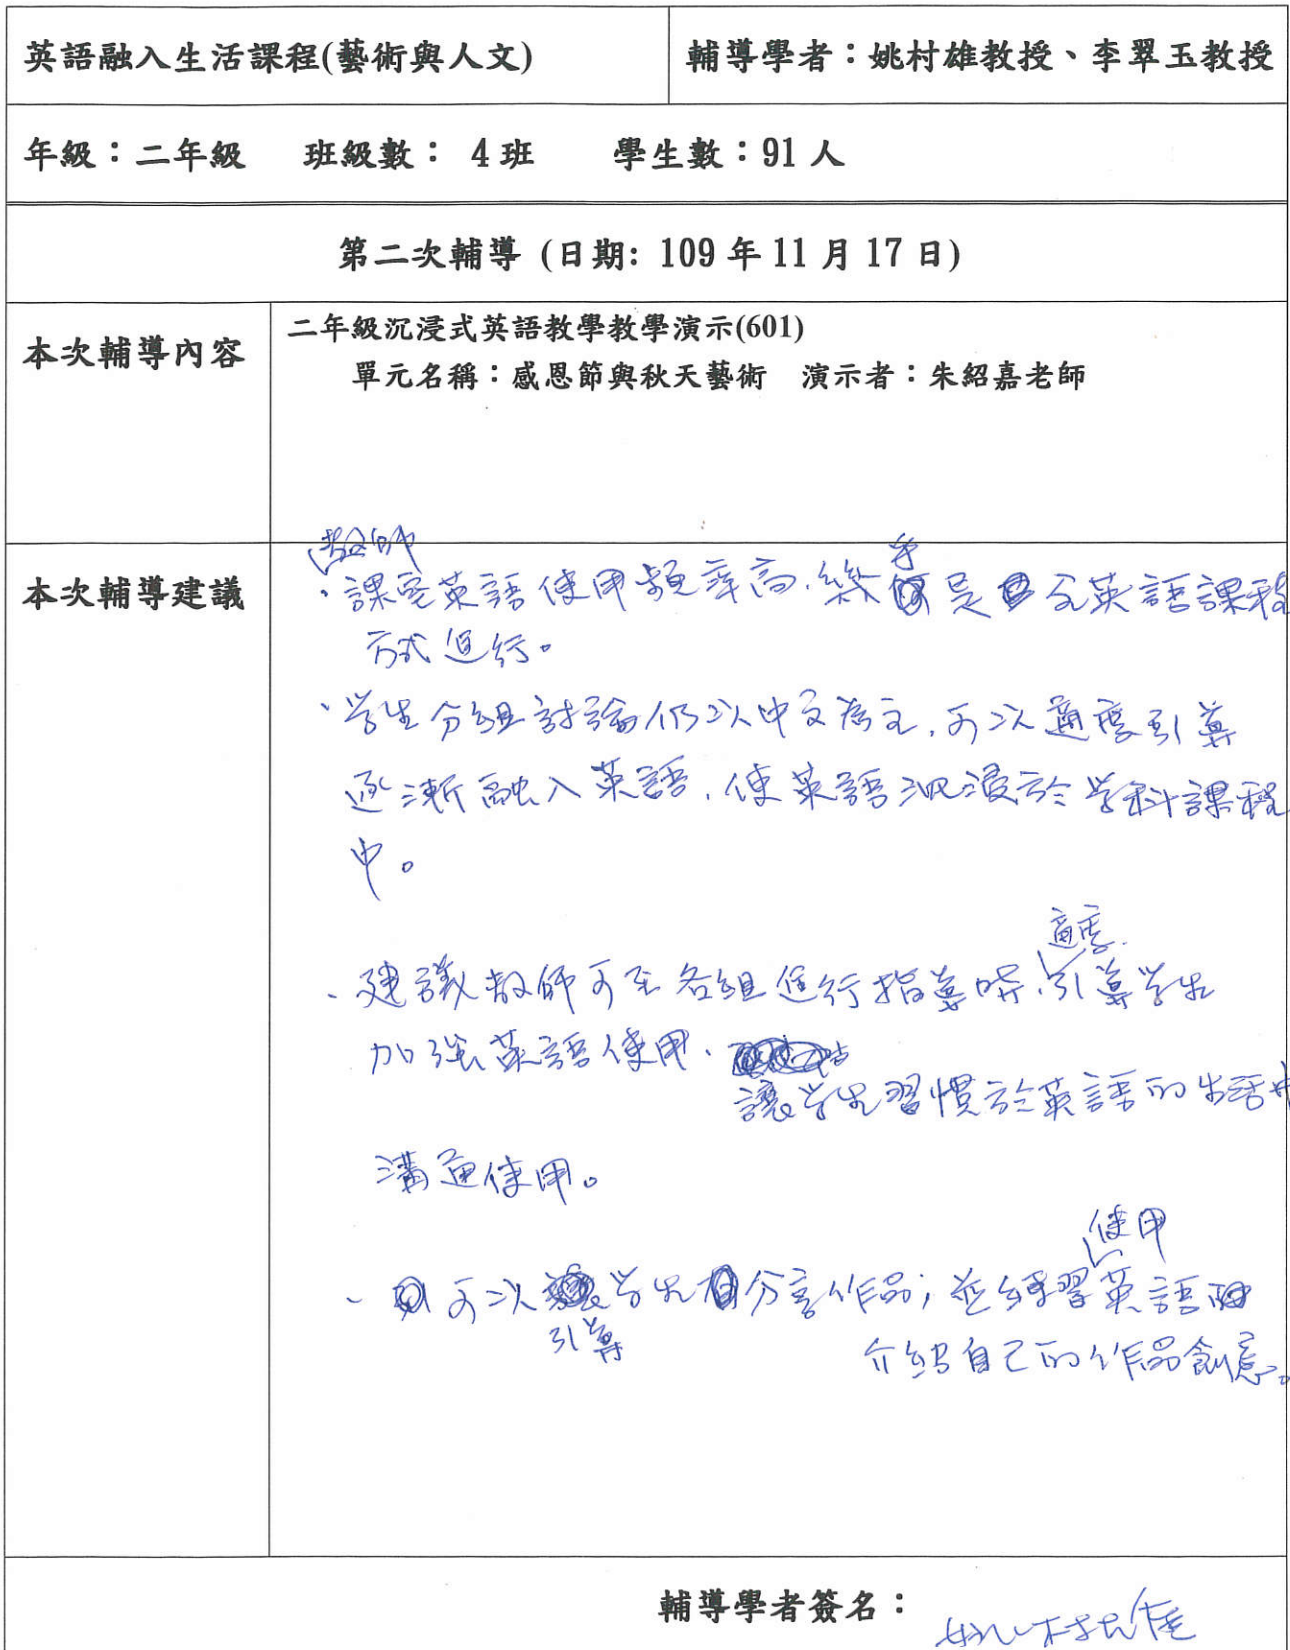 英語融入生活課程(藝術與人文)
輔導學者：姚村雄教授、李翠玉教授
年級：二年級 班級數： 4班 學生數：91人
第二次輔導 (日期: 109年11月17日)
本次輔導內容
二年級沉浸式英語教學教學演示(601)
單元名稱：感恩節與秋天藝術 演示者：朱紹嘉老師
本次輔導建議
教師
、課室英語使用頻率高,幾乎是全英語課程
方式進行。
、学生分組討論仍以中文為主,可以適度引導
逐漸融入英語,使英語沉浸於学科課程
中。
、建議教師可至各組進行指導時,適度引導学生
加強英語使用、
讓学生習慣於英語的生活中
溝通使用。
、可以引導学生分享作品;並練習使用英語
介紹自己的作品創意。
輔導學者簽名：
姚村雄